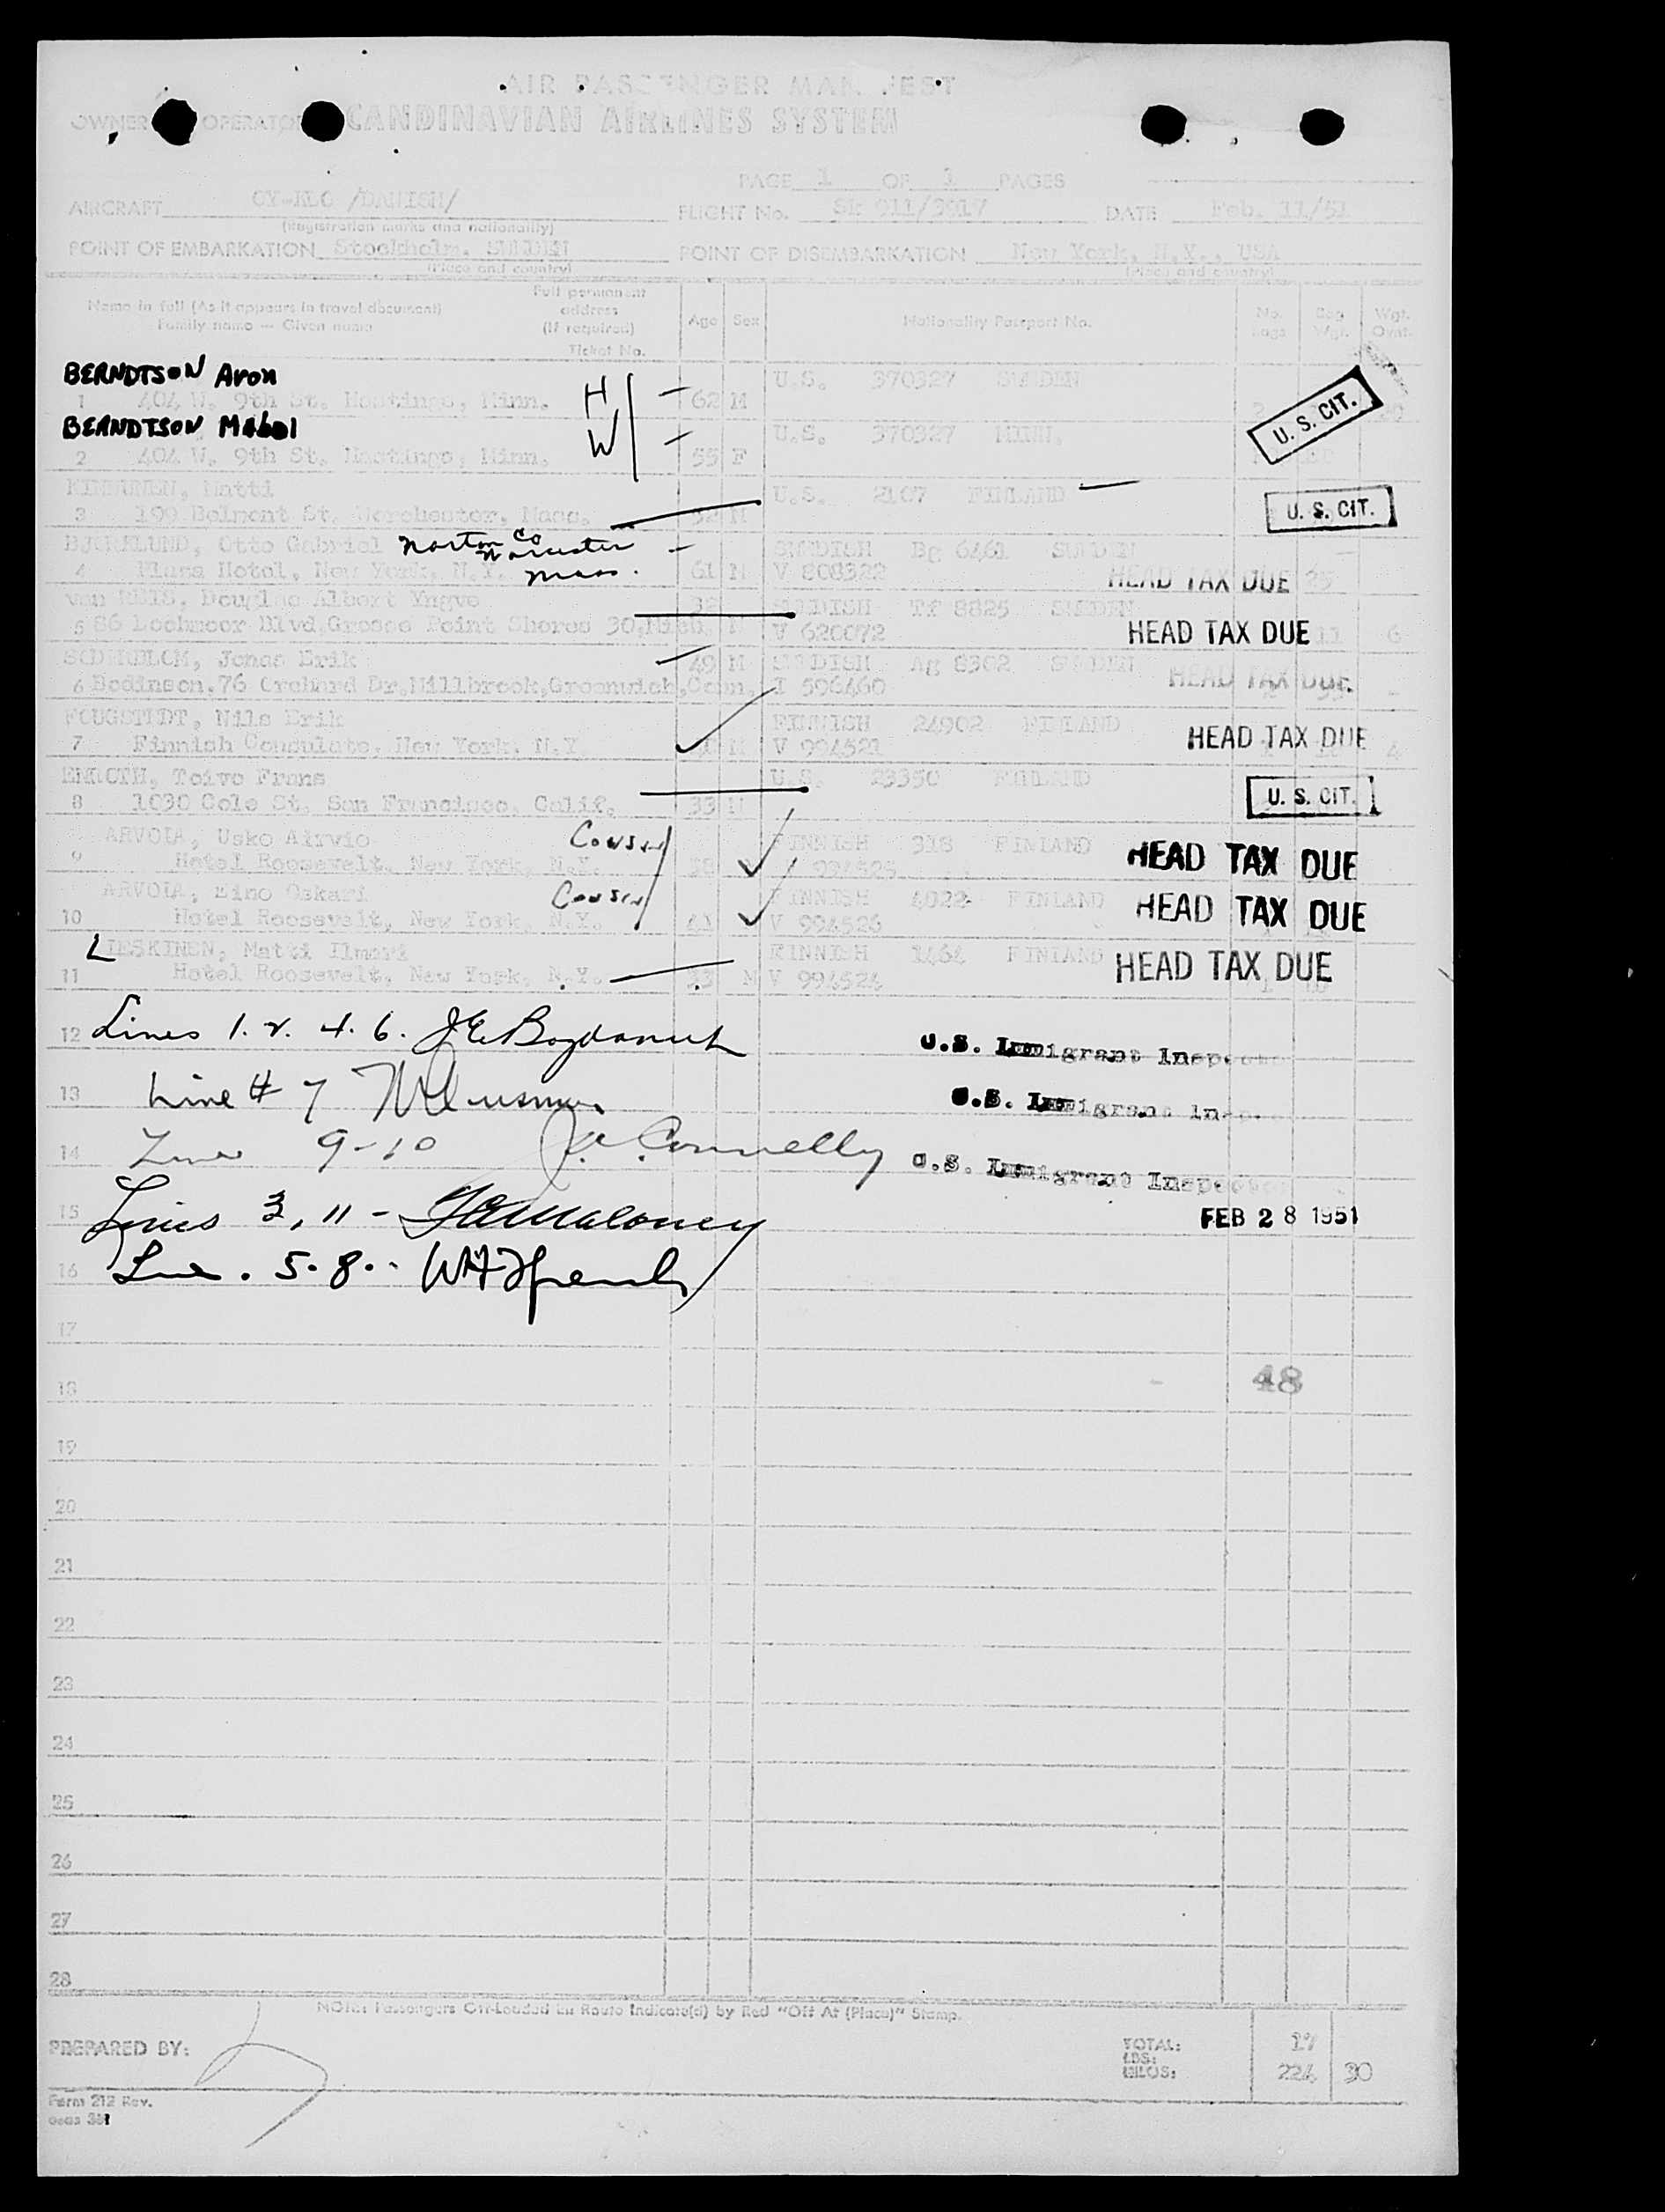 AIR PASSENGER MANIFEST
OWNER OPERATOR SCANDINAVIAN AIRLINES SYSTEM
PAGE 1 OF 1 PAGES
AIRCRAFT /DANISH/ FLIGHT No. SK 911/3017 DATE Feb. 11/51
(Registration marks and nationality)
POINT OF EMBARKATION Stockholm, SWEDEN POINT OF DISEMBARKATION New York, N.Y., USA
(Place and country) (Place and country)
Name in full (As it appears in travel document) Family name — Given name Full permanent address (If required) Ticket No. Age Sex Nationality Passport No. No. Bags Bag Wgt. Wgt. Ovnt.
BERNDTSON Aron U.S. 370327 SWEDEN
1 404 W. 9th St. Hastings, Minn. H 62 M U.S. CIT.
BERNDTSON Mabel U.S. 370327 MINN.
2 404 W. 9th St. Hastings, Minn. W 55 F
Matti U.S. 2107 FINLAND
3 199 Belmont St. Worchester, Mass. M U.S. CIT.
BJORKLUND, Otto Gabriel Norton Co Worcester Mass. SWEDISH Bg 6461 SWEDEN
4 Plaza Hotel, New York, N.Y. 61 M V 808322 HEAD TAX DUE 25
von REIS, Douglas Albert Yngve 32 SWEDISH Tf 8825 SWEDEN
5 86 Lochmoor Blvd, Grosse Point Shores 30, Mich. M V 620072 HEAD TAX DUE 11 6
SODERBLOM, Jonas Erik 49 M SWEDISH Ag 8302 SWEDEN
6 Bodinson, 76 Orchard Dr, Millbrook, Greenwich, Conn. I 596460 HEAD TAX DUE -
FOUGSTEDT, Nils Erik FINNISH 24902 FINLAND
7 Finnish Consulate, New York, N.Y. M V 994521 HEAD TAX DUE 4
ENROTH, Toivo Frans U.S. 23350 FINLAND
8 1030 Cole St. San Francisco, Calif. 33 M U.S. CIT.
ARVOLA, Usko Airvio Cousin FINNISH 318 FINLAND
9 Hotel Roosevelt, New York, N.Y. 38 994525 HEAD TAX DUE
ARVOLA, Eino Oskari Cousin FINNISH 4022 FINLAND
10 Hotel Roosevelt, New York, N.Y. 41 V 994526 HEAD TAX DUE
LIESKINEN, Matti Ilmari FINNISH 1464 FINLAND
11 Hotel Roosevelt, New York, N.Y. 33 M V 994524 HEAD TAX DUE
12 Lines 1. 2. 4. 6. U.S. Immigrant Inspector
13 Line # 7 U.S. Immigrant Insp.
14 Line 9-10 Connelly U.S. Immigrant Inspector
15 Lines 3, 11 - Maloney FEB 28 1951
16 Line. 5. 8.
17
18 48
19
20
21
22
23
24
25
26
27
28
NOTE: Passengers Off-Loaded En Route Indicate(d) by Red "Off At (Place)" Stamp.
PREPARED BY: TOTAL: 17
LBS:
KILOS: 224 30
Form 212 Rev.